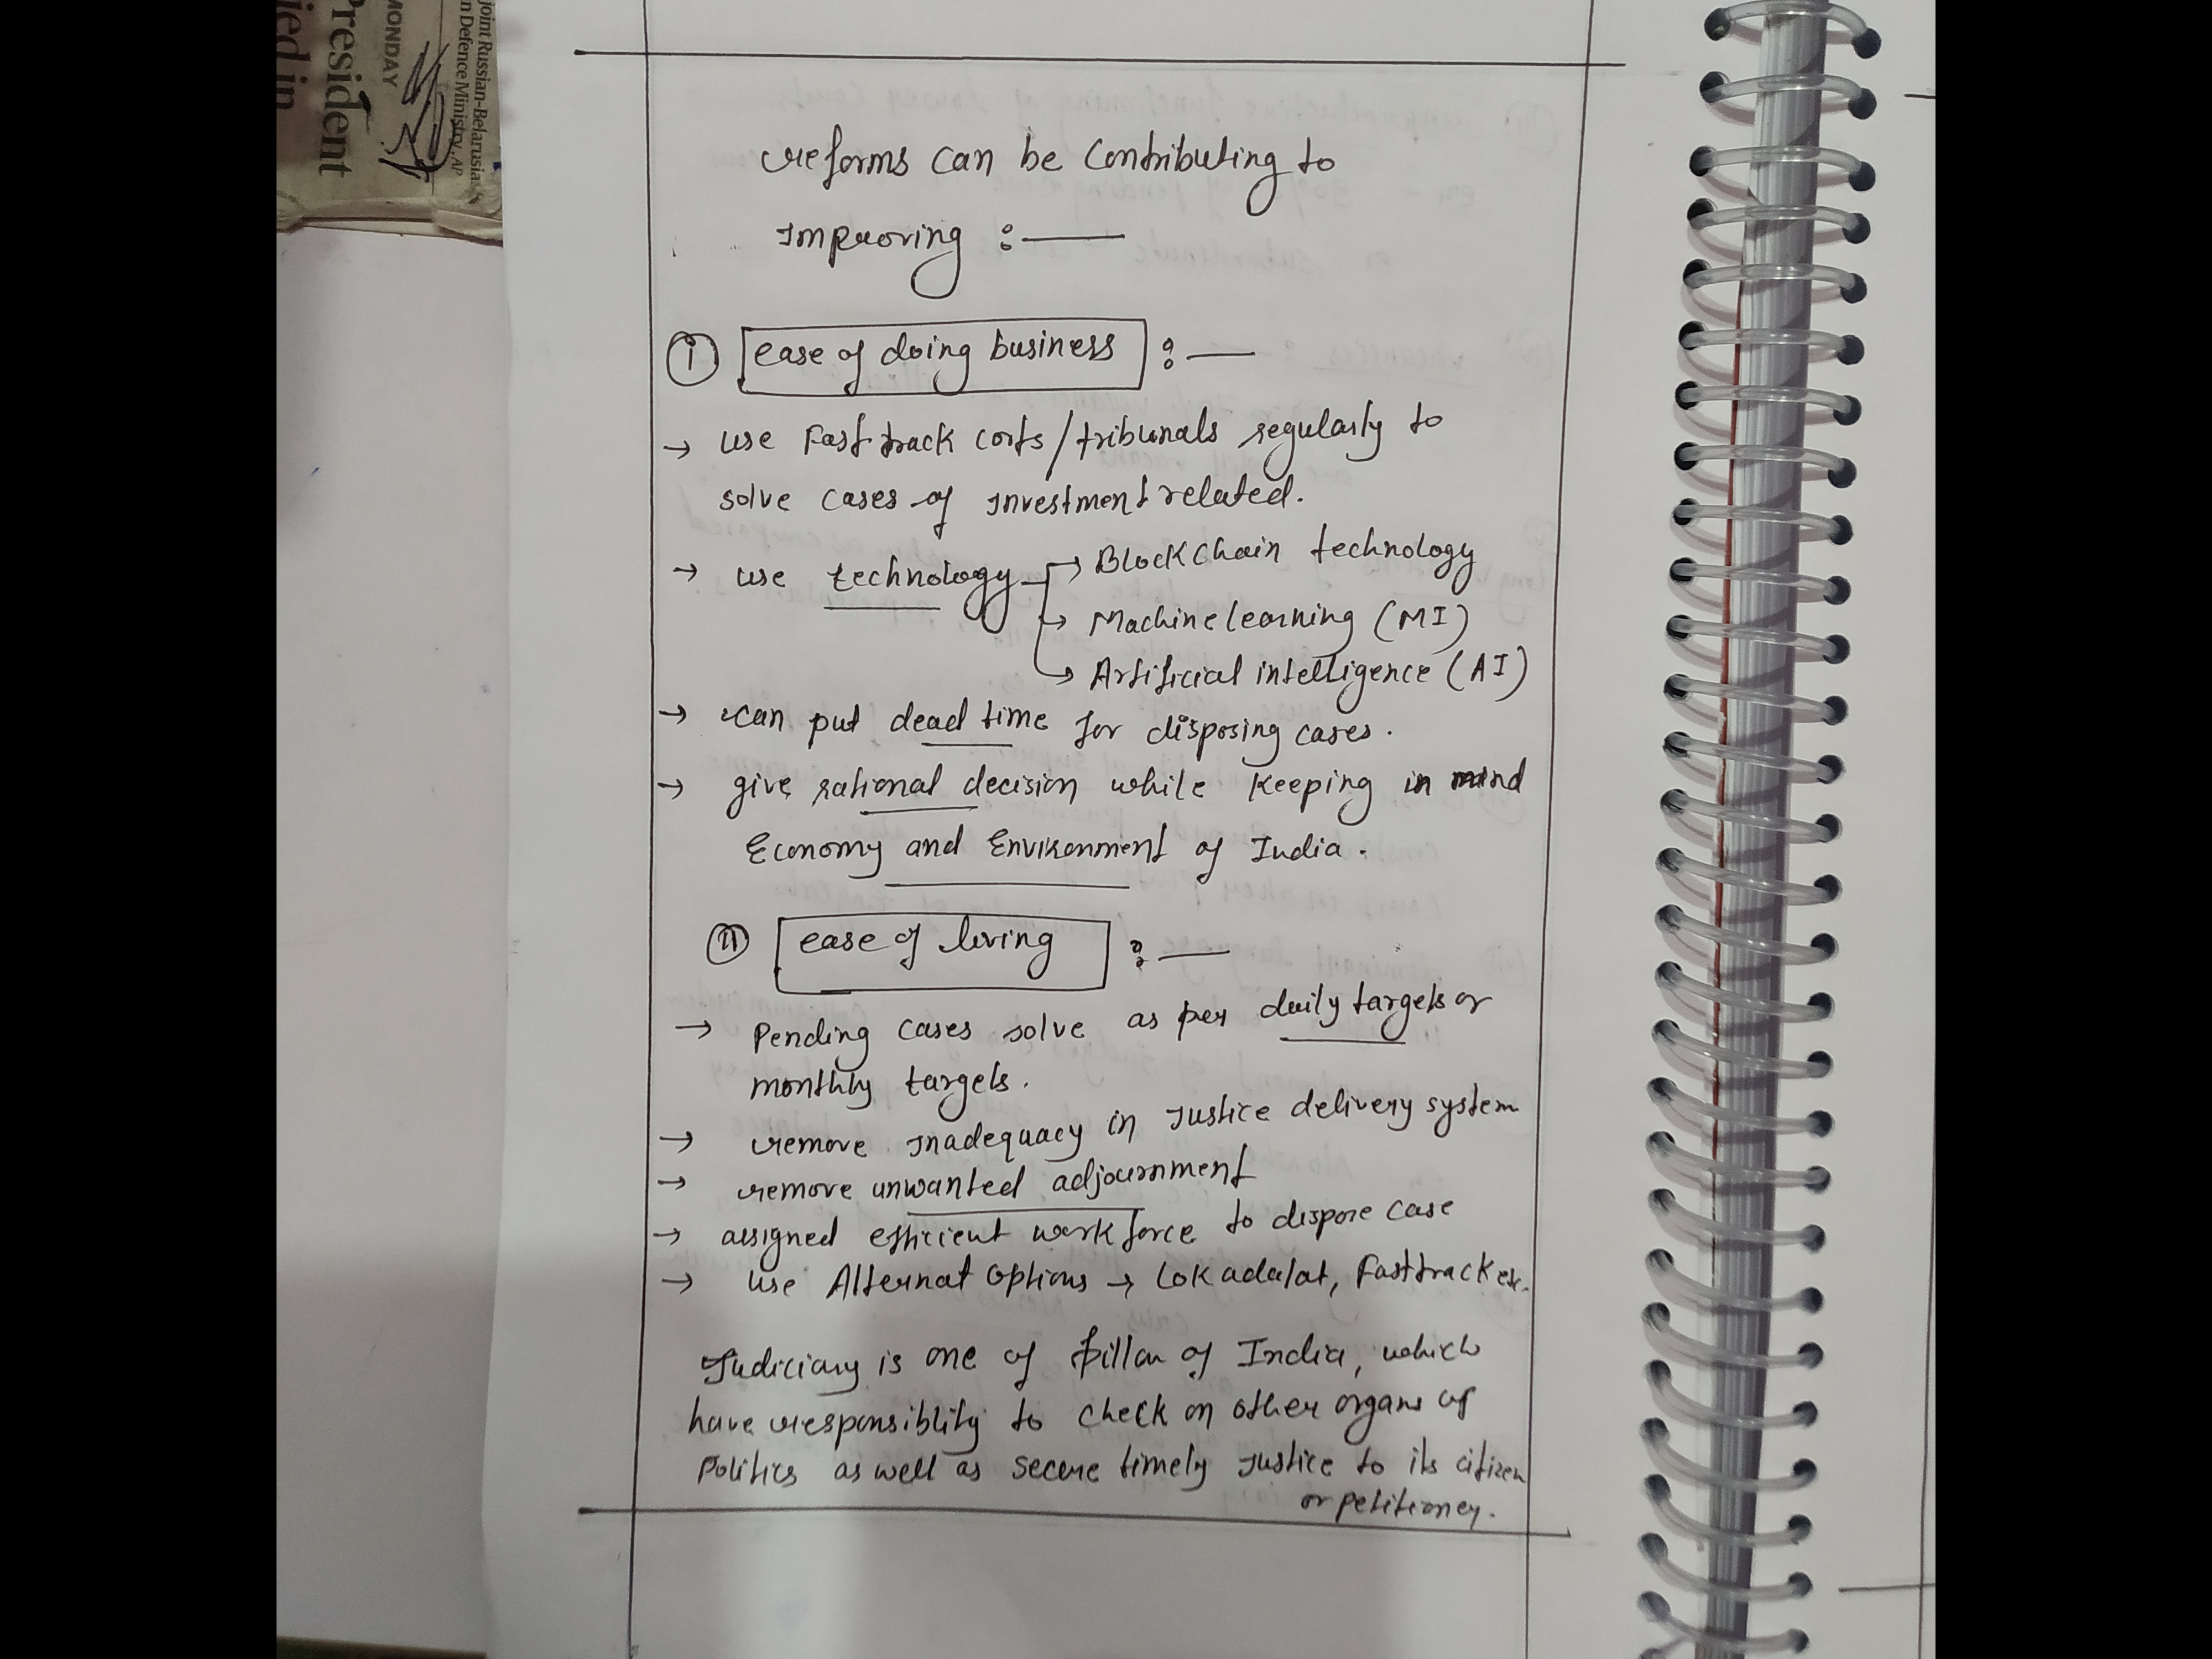 joint Russian-Belarusia
n Defence Ministry. AP
MONDAY
President
ied in
reforms can be Contributing to
Improving :—
(i) ease of doing business :—
→ use Fast track corts/tribunals regularly to
solve cases of Investment related.
→ use technology → BlockChain technology
→ Machine learning (MI)
→ Artificial intelligence (AI)
→ can put dead time for disposing cases.
→ give rational decision while keeping in mind
Economy and Environment of India.
(ii) ease of living :—
→ Pending cases solve as per daily targets or
monthly targets.
→ remove Inadequacy in Justice delivery system
→ remove unwanted adjournment
→ assigned efficient work force to dispose case
→ use Alternat options → Lok adalat, Fasttrack etc.
Judiciary is one of pillar of India, which
have responsiblity to check on other organs of
Politics as well as secure timely Justice to its citizen
or petitioner.